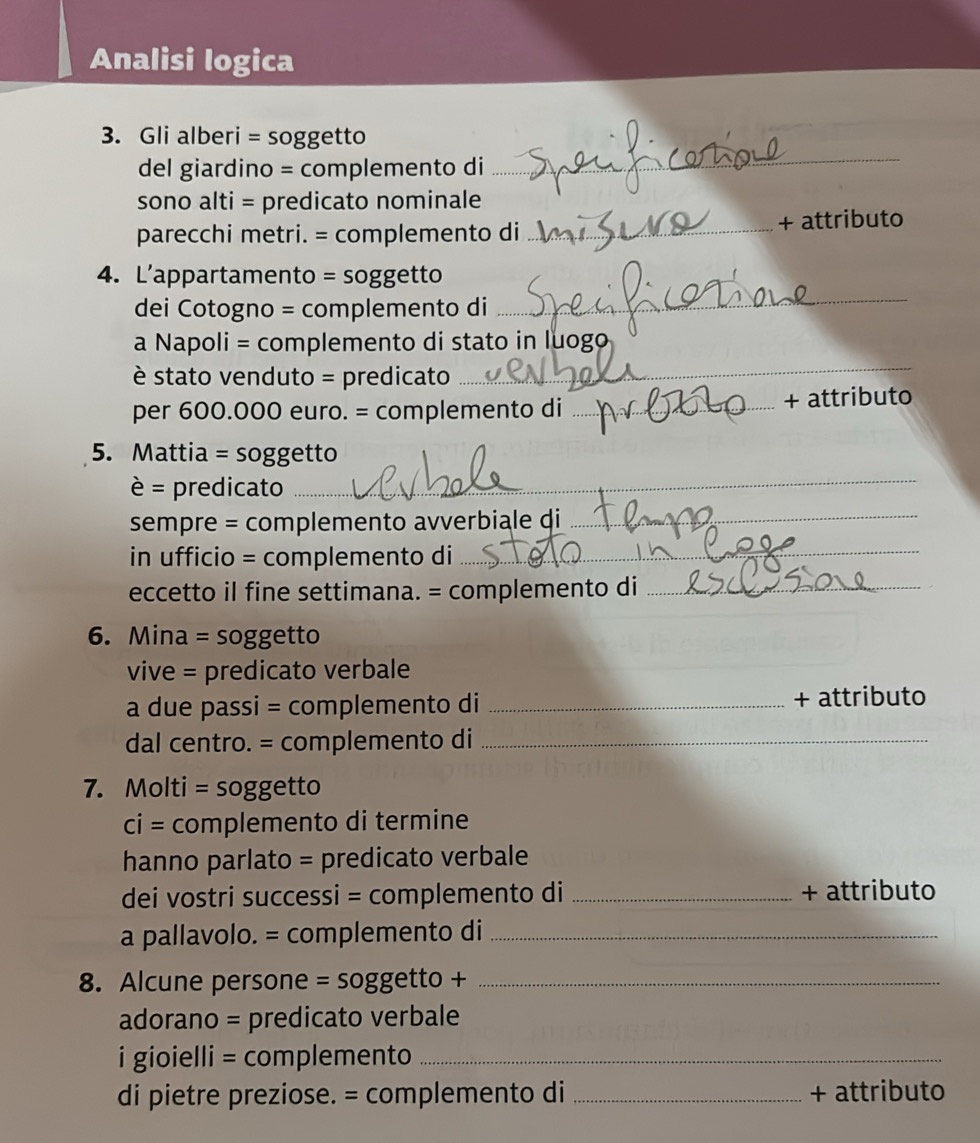 Analisi logica
3. Gli alberi = soggetto
del giardino = complemento di specificatione
sono alti = predicato nominale
parecchi metri. = complemento di misura + attributo
4. L'appartamento = soggetto
dei Cotogno = complemento di specificatione
a Napoli = complemento di stato in luogo
è stato venduto = predicato verbale
per 600.000 euro. = complemento di prezzo + attributo
5. Mattia = soggetto
è = predicato verbale
sempre = complemento avverbiale di tempo
in ufficio = complemento di stato in luogo
eccetto il fine settimana. = complemento di esclusione
6. Mina = soggetto
vive = predicato verbale
a due passi = complemento di + attributo
dal centro. = complemento di
7. Molti = soggetto
ci = complemento di termine
hanno parlato = predicato verbale
dei vostri successi = complemento di + attributo
a pallavolo. = complemento di
8. Alcune persone = soggetto +
adorano = predicato verbale
i gioielli = complemento
di pietre preziose. = complemento di + attributo